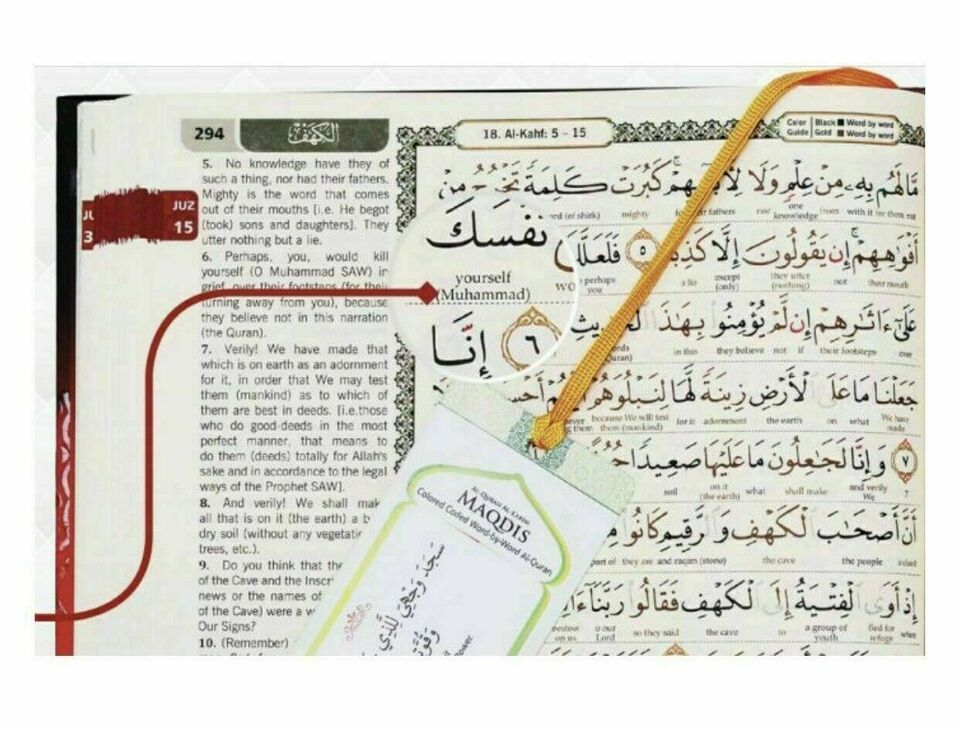 294
الكهف
18. Al-Kahf: 5 - 15
Color Guide
Black ■ Word by word
Gold ■ Word by word
JUZ
15
5. No knowledge have they of
such a thing, nor had their fathers.
Mighty is the word that comes
out of their mouths [i.e. He begot
(took) sons and daughters]. They
utter nothing but a lie.
6. Perhaps, you, would kill
yourself (O Muhammad SAW) in
grief, over their footsteps (for their
turning away from you), because
they believe not in this narration
(the Quran).
7. Verily! We have made that
which is on earth as an adornment
for it, in order that We may test
them (mankind) as to which of
them are best in deeds. [i.e.those
who do good deeds in the most
perfect manner, that means to
do them (deeds) totally for Allah's
sake and in accordance to the legal
ways of the Prophet SAW].
8. And verily! We shall mak
all that is on it (the earth) a b
dry soil (without any vegetati
trees, etc.).
9. Do you think that the
of the Cave and the Inscri
news or the names of
of the Cave) were a w
Our Signs?
10. (Remember)
مَّا لَهُم بِهِۦ مِنْ عِلْمٍ وَلَا لِآبَائِهِمْ ۚ كَبُرَتْ كَلِمَةً تَخْرُجُ مِنْ
mighty fathers nor one knowledge from with it
أَفْوَٰهِهِمْ ۚ إِن يَقُولُونَ إِلَّا كَذِبًا ٥ فَلَعَلَّكَ
perhaps you a lie except (only) they utter (nothing) not their mouth
نَّفْسَكَ
yourself
(Muhammad)
عَلَىٰٓ ءَاثَٰرِهِمْ إِن لَّمْ يُؤْمِنُوا۟ بِهَٰذَا ٱلْحَدِيثِ
in this they believe not if their footsteps over
٦ إِنَّا
جَعَلْنَا مَا عَلَى ٱلْأَرْضِ زِينَةً لَّهَا لِنَبْلُوَهُمْ أَيُّهُمْ أَحْسَ
because We will test them (mankind) for it adornment the earth on what We have made
٧ وَإِنَّا لَجَٰعِلُونَ مَا عَلَيْهَا صَعِيدًا جُ
soil on it (the earth) what shall make and verily We 7
أَنَّ أَصْحَٰبَ ٱلْكَهْفِ وَٱلرَّقِيمِ كَانُوا۟
part of they are and raqim (stone) the cave the people
إِذْ أَوَى ٱلْفِتْيَةُ إِلَى ٱلْكَهْفِ فَقَالُوا۟ رَبَّنَآ ءَا
bestow on us o our Lord so they said the cave to a group of youth fled for refuge when
AL QURAN AL KARIM
MAQDIS
Colored Coded Word-by-Word Al-Quran
سَجَدَ وَجْهِيَ لِلَّذِي